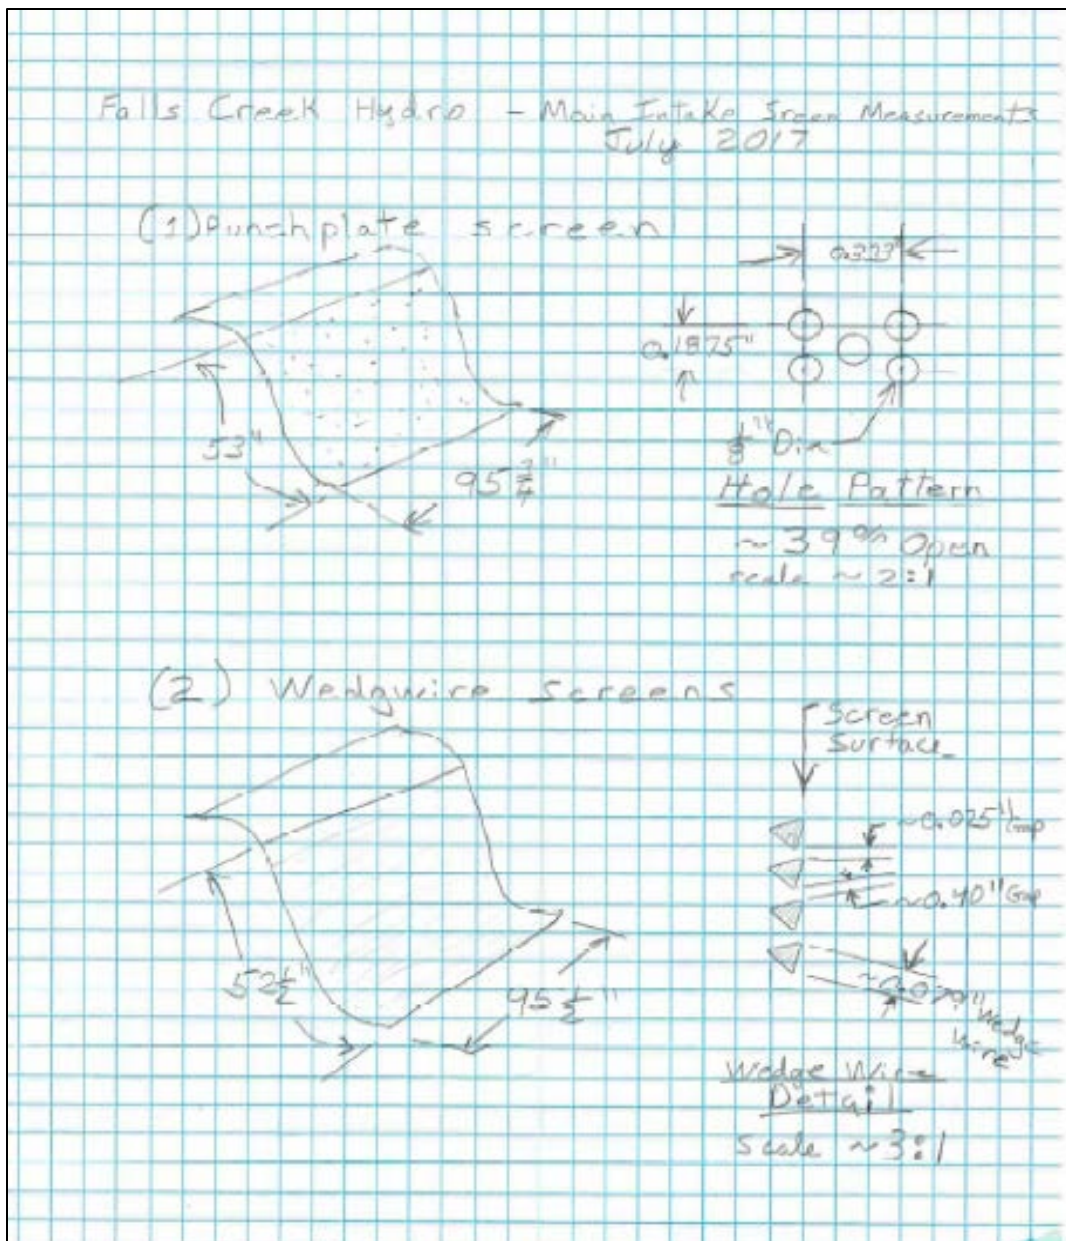 Falls Creek Hydro - Main Intake Sreen Measurements
July 2017
(1) Punchplate screen
0.333"
0.1875"
53"
95 3/4"
1/8" Dia
Hole Pattern
~ 39% Open
scale ~ 2:1
(2) Wedgwire Screens
Screen
Surface
~0.025" Gap
~0.40" Gap
52 1/2"
95 1/2"
Wedge
Wire
Wedge Wire
Detail
Scale ~3:1